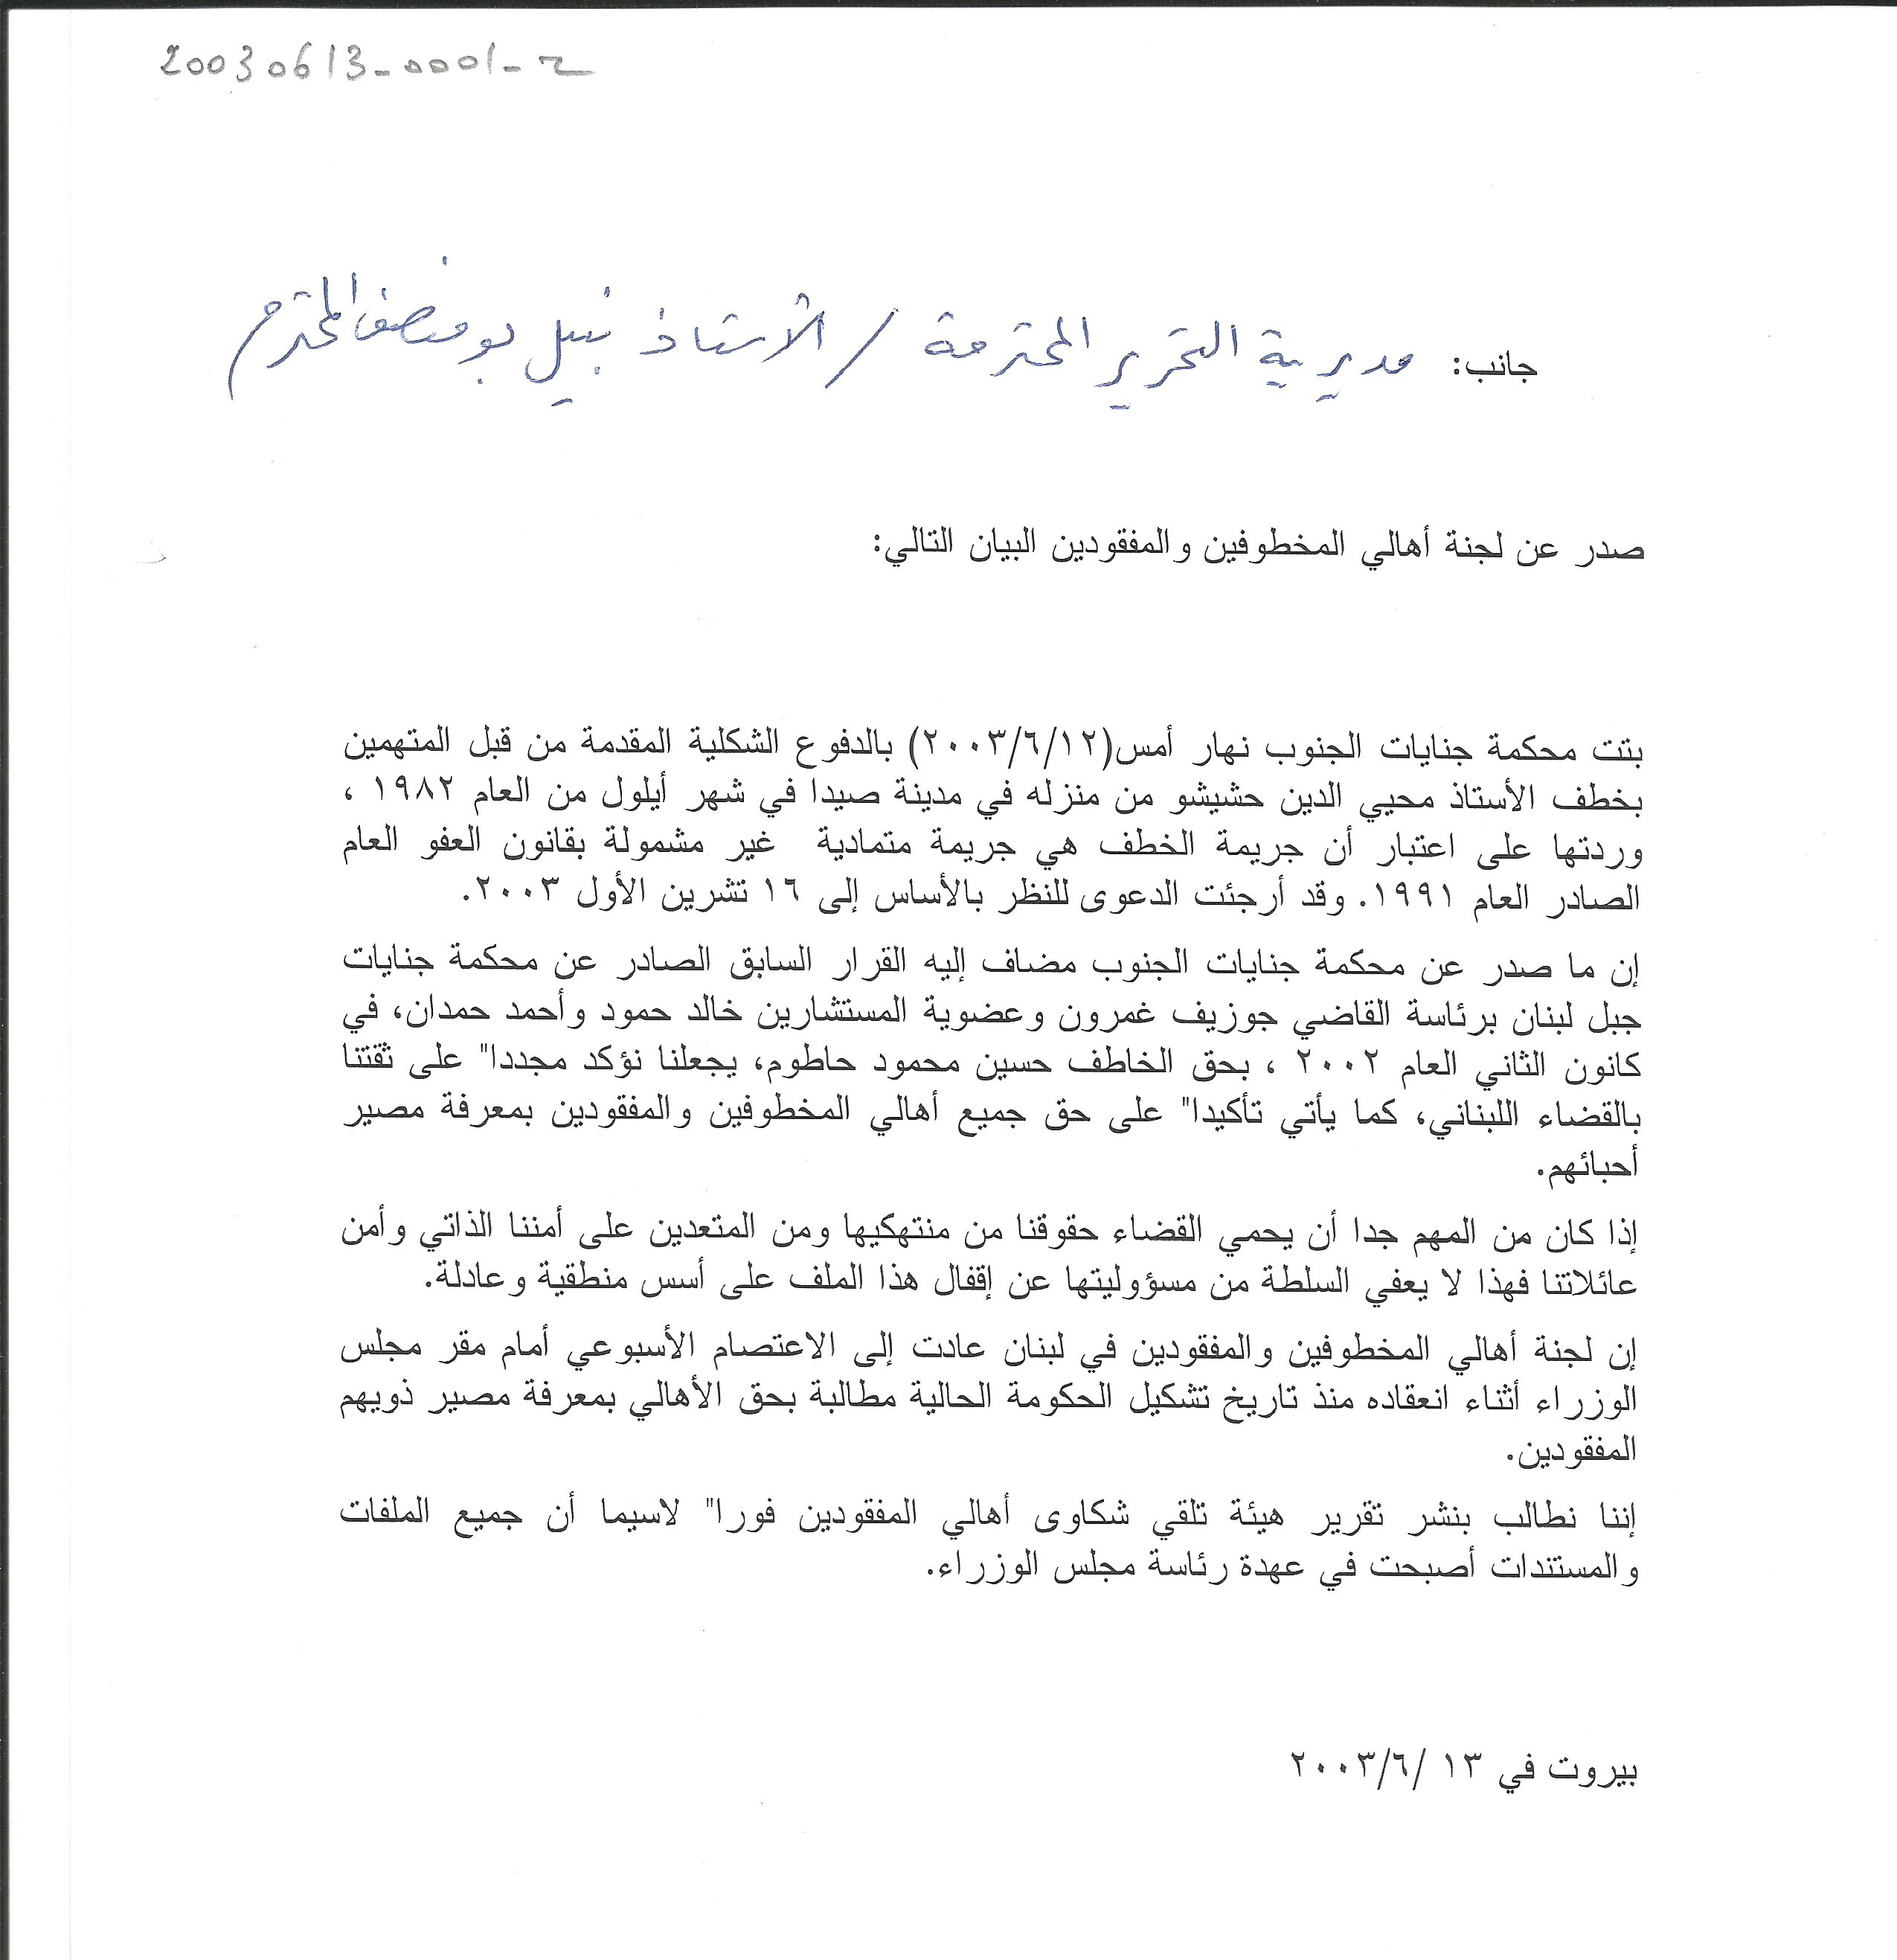 20030613-0001-2
جانب: مديرية التحرير المحترمة / الأستاذ نبيل بو منصف المحترم
صدر عن لجنة أهالي المخطوفين والمفقودين البيان التالي:
بتت محكمة جنايات الجنوب نهار أمس(٢٠٠٣/٦/١٢) بالدفوع الشكلية المقدمة من قبل المتهمين
بخطف الأستاذ محيي الدين حشيشو من منزله في مدينة صيدا في شهر أيلول من العام ١٩٨٢ ،
وردتها على اعتبار أن جريمة الخطف هي جريمة متمادية غير مشمولة بقانون العفو العام
الصادر العام ١٩٩١. وقد أرجئت الدعوى للنظر بالأساس إلى ١٦ تشرين الأول ٢٠٠٣.
إن ما صدر عن محكمة جنايات الجنوب مضاف إليه القرار السابق الصادر عن محكمة جنايات
جبل لبنان برئاسة القاضي جوزيف غمرون وعضوية المستشارين خالد حمود وأحمد حمدان، في
كانون الثاني العام ٢٠٠٢ ، بحق الخاطف حسين محمود حاطوم، يجعلنا نؤكد مجددا" على ثقتنا
بالقضاء اللبناني، كما يأتي تأكيدا" على حق جميع أهالي المخطوفين والمفقودين بمعرفة مصير
أحبائهم.
إذا كان من المهم جدا أن يحمي القضاء حقوقنا من منتهكيها ومن المتعدين على أمننا الذاتي وأمن
عائلاتنا فهذا لا يعفي السلطة من مسؤوليتها عن إقفال هذا الملف على أسس منطقية وعادلة.
إن لجنة أهالي المخطوفين والمفقودين في لبنان عادت إلى الاعتصام الأسبوعي أمام مقر مجلس
الوزراء أثناء انعقاده منذ تاريخ تشكيل الحكومة الحالية مطالبة بحق الأهالي بمعرفة مصير ذويهم
المفقودين.
إننا نطالب بنشر تقرير هيئة تلقي شكاوى أهالي المفقودين فورا" لاسيما أن جميع الملفات
والمستندات أصبحت في عهدة رئاسة مجلس الوزراء.
بيروت في ١٣ /٢٠٠٣/٦